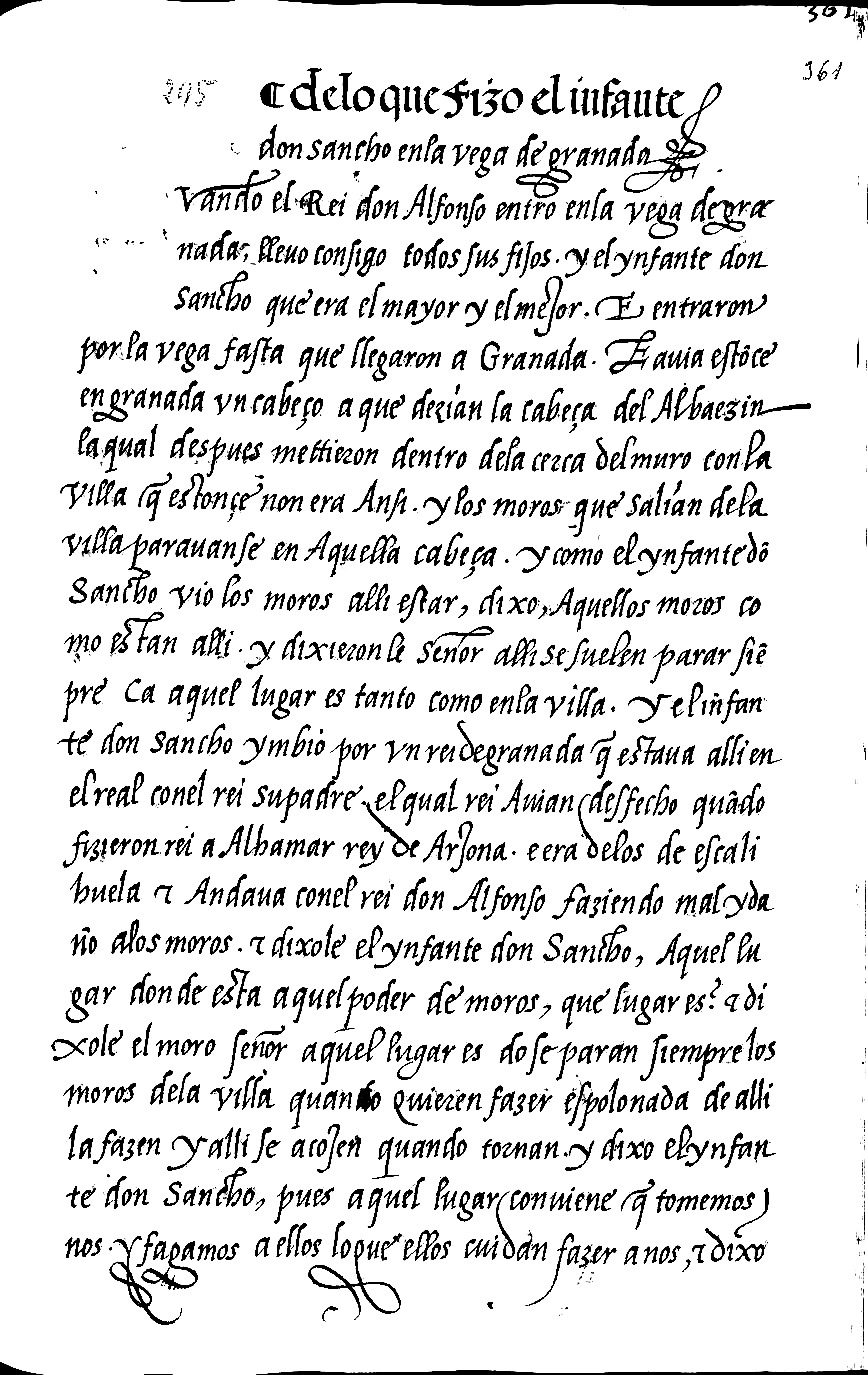 361
361
295 ¶ deloque fizo el infante
don sancho enla vega de granada
vando el Rei don Alfonso entro enla vega de gra
nada, lleuo consigo todos sus fijos. y el ynfante don
Sancho que era el mayor y el mejor. E entraron
por la vega fasta que llegaron a Granada. E auia estõce
en granada vn cabeço a que dezían la cabeça del Albaezin
la qual despues mettieron dentro dela cerca del muro con la
villa q̃ estonçe non era Ansi. y los moros que salían de la
villa parauanse en Aquella cabeça. y como el ynfante dõ
Sancho vio los moros alli estar, dixo, Aquellos moros co
mo estan alli. y dixieron le señor alli se suelen parar siẽ
pre Ca aquel lugar es tanto como enla villa. Y el iñfan
te don Sancho ymbió por vn rei de granada q̃ estaua alli en
el real conel rei su padre, el qual rei Auian desfecho quãdo
fizieron rei a Alhamar rey de Arjona. e era delos de escali
huela ⁊ Andaua conel rei don Alfonso faziendo mal y da
ño alos moros. ⁊ dixole el ynfante don Sancho, Aquel lu
gar donde esta aquel poder de moros, que lugar es? ⁊ di
xole el moro señor aquel lugar es do se paran siempre los
moros dela villa quando quieren fazer espolonada de alli
la fazen y alli se acojen quando tornan. y dixo el ynfan
te don Sancho, pues aquel lugar conviene q̃ tomemos
nos. y fagamos a ellos loque ellos cuidan fazer a nos, ⁊ dixo